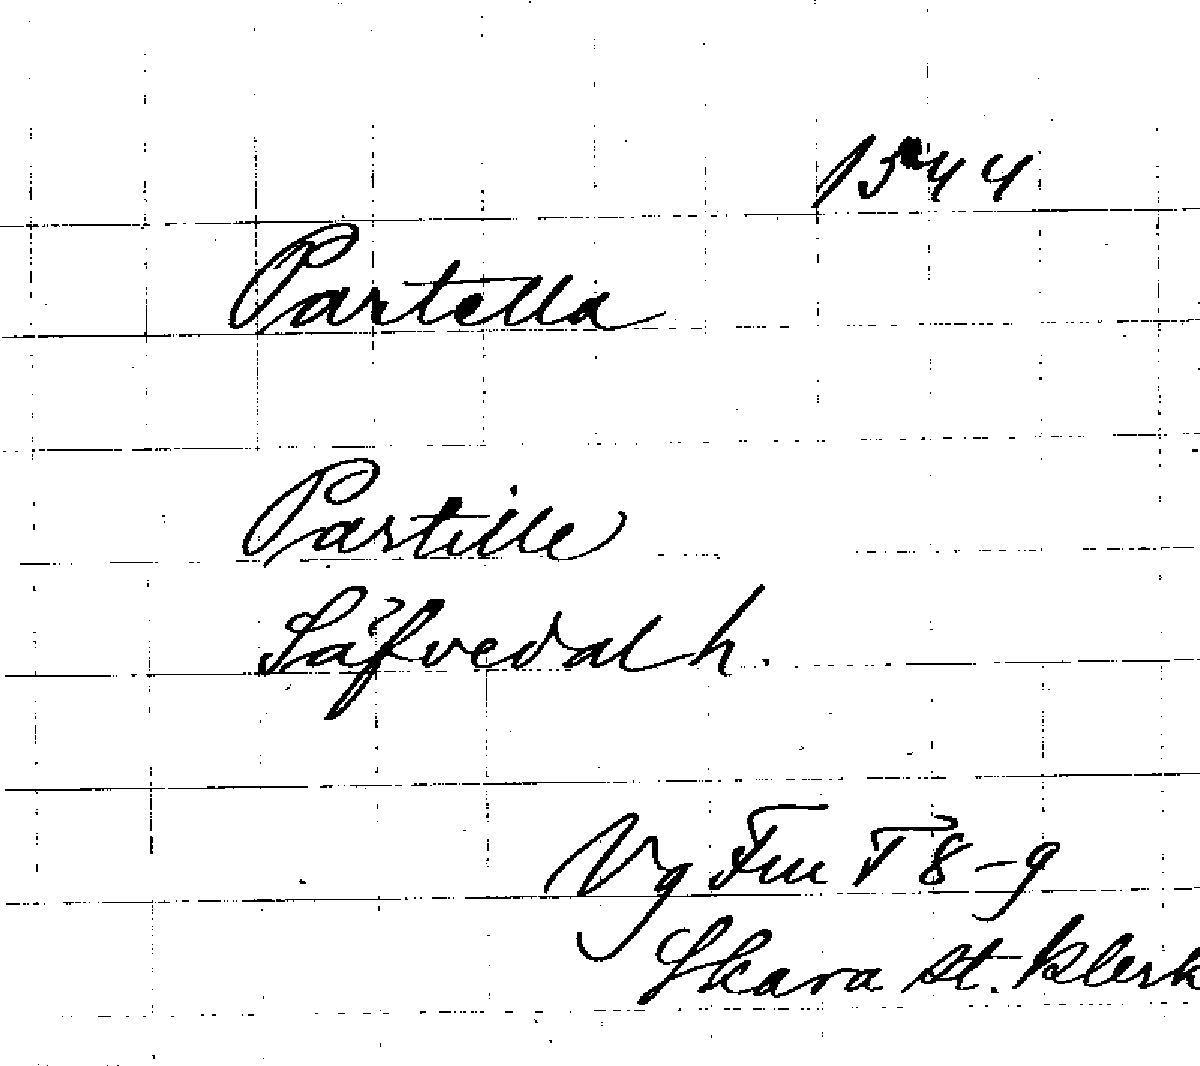 1544
Partella
Partille
Säfvedal h.
Vg Fm T 8-9
Skara st. klerk